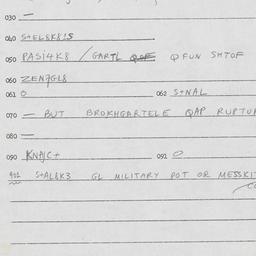 030 —
040 S+EL8K8!S
050 PASi4K8 / GARTL QFUN SHTOF
060 ZENAGL8
061 0 062 S+NAL
070 — BUT BROKHGARTELE QAP RUPTU
080 —
090 KNAJC+ 091 0
S+AL8K3 GL MILITARY POT OR MESSKI